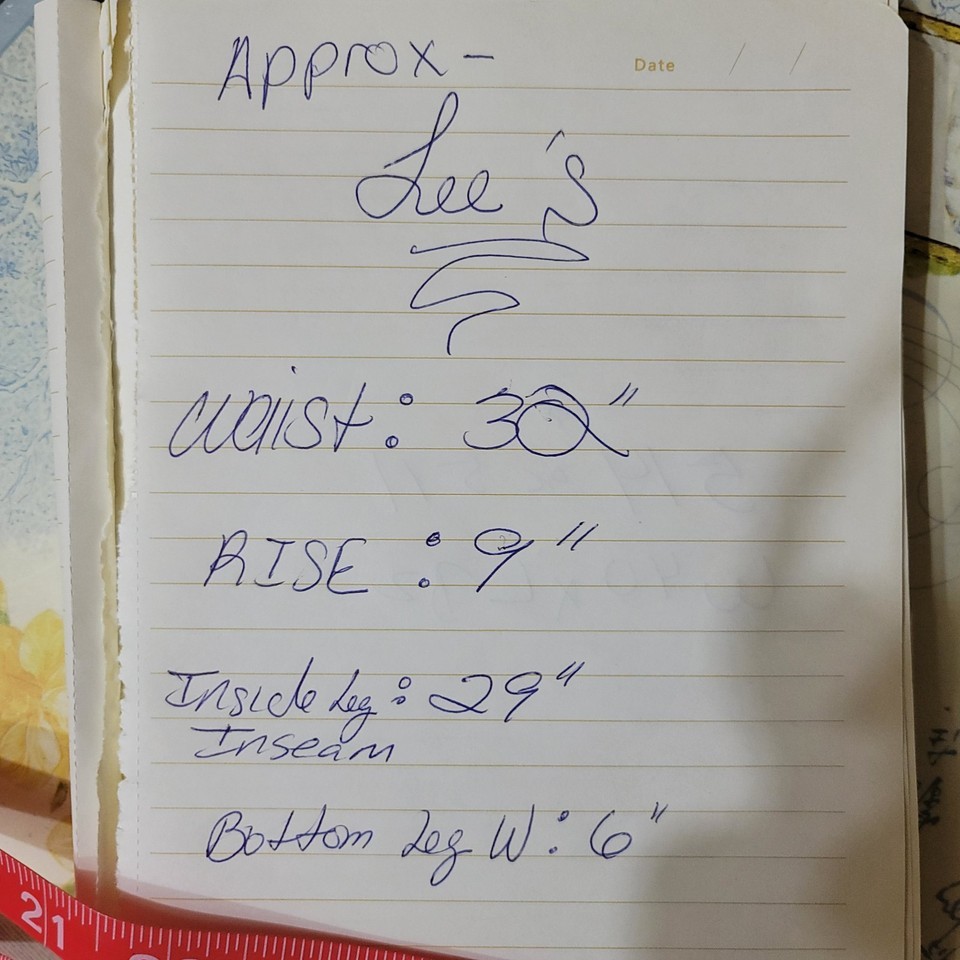 Approx -
Date / /
Lee's
Waist: 32"
RISE : 9"
Inside Leg: 29"
Inseam
Bottom Leg W: 6"
21